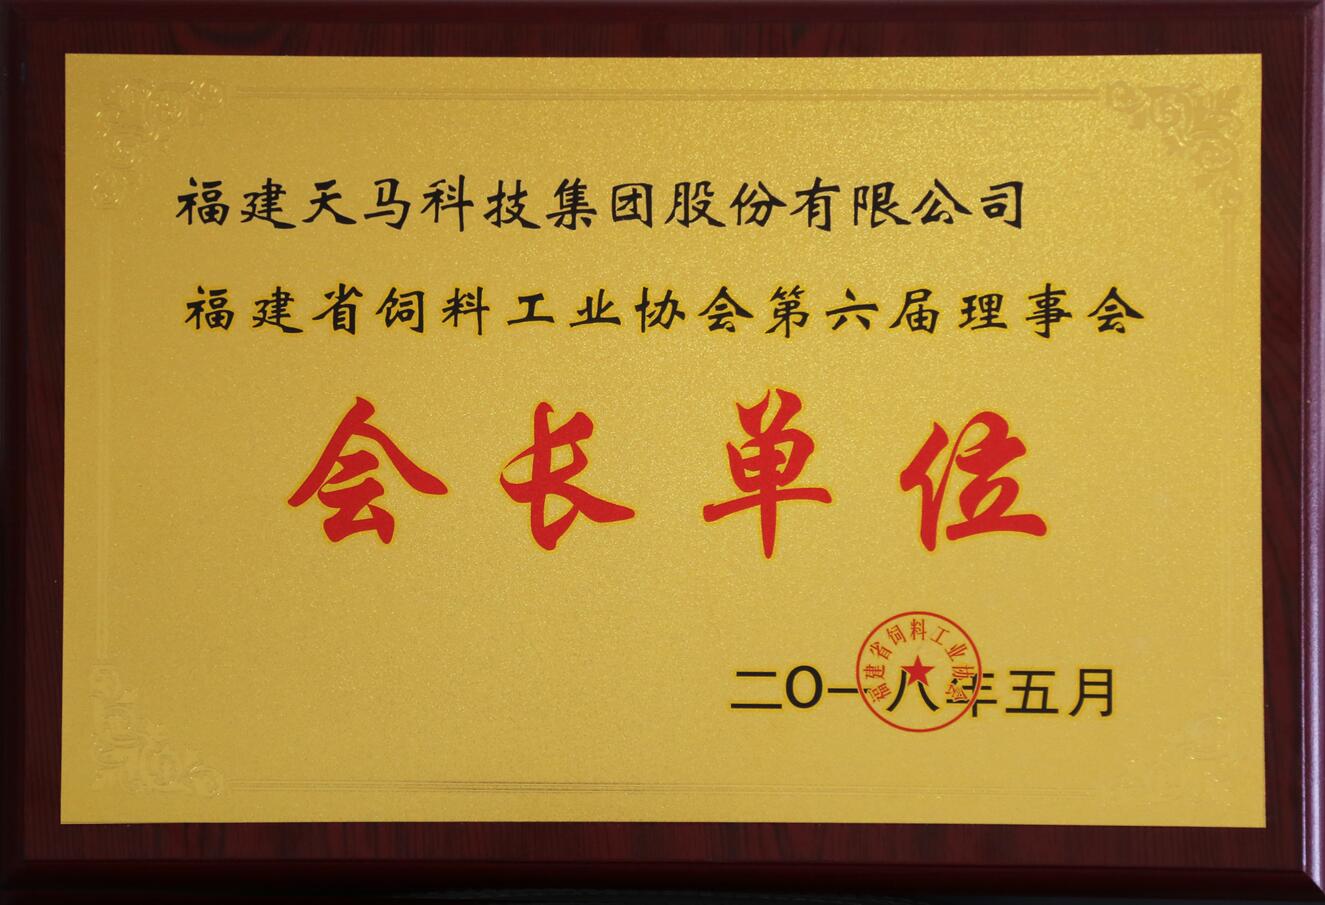 福建天马科技集团股份有限公司
福建省饲料工业协会第六届理事会
会长单位
二〇一八年五月
福建省饲料工业协会